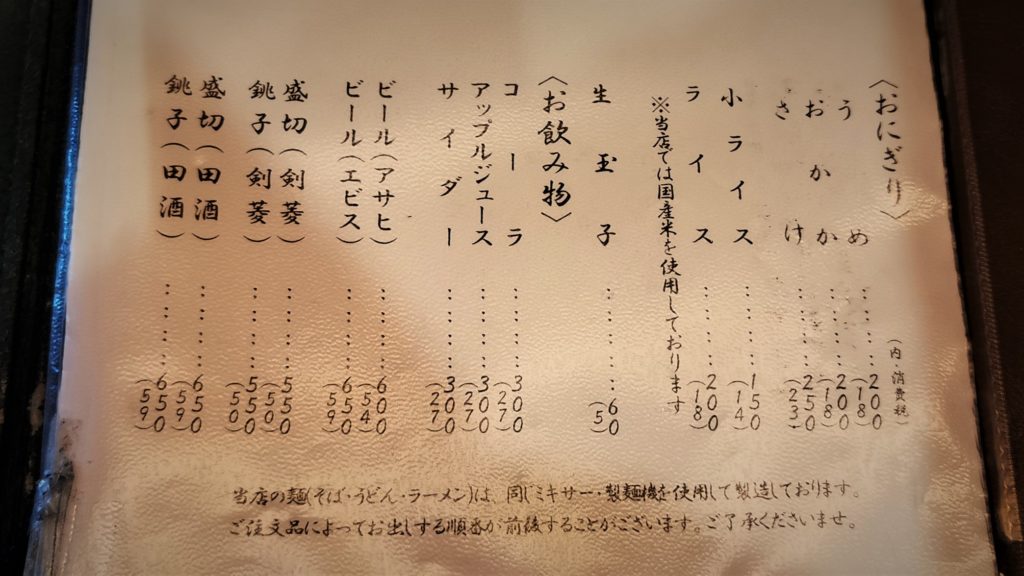 〈おにぎり〉
(内消費税)
うめ……200(18)
おかか……200(18)
さけ……250(23)
小ライス……150(14)
ライス……200(18)
※当店では国産米を使用しております
生玉子……60(5)
〈お飲み物〉
コーラ……300(27)
アップルジュース……300(27)
サイダー……300(27)
ビール(アサヒ)……600(54)
ビール(エビス)……650(59)
盛切(剣菱)……550(50)
銚子(剣菱)……550(50)
盛切(田酒)……650(59)
銚子(田酒)……650(59)
当店の麺(そば・うどん・ラーメン)は、同じミキサー・製麺機を使用して製造しております。
ご注文品によってお出しする順番が前後することがございます。ご了承くださいませ。